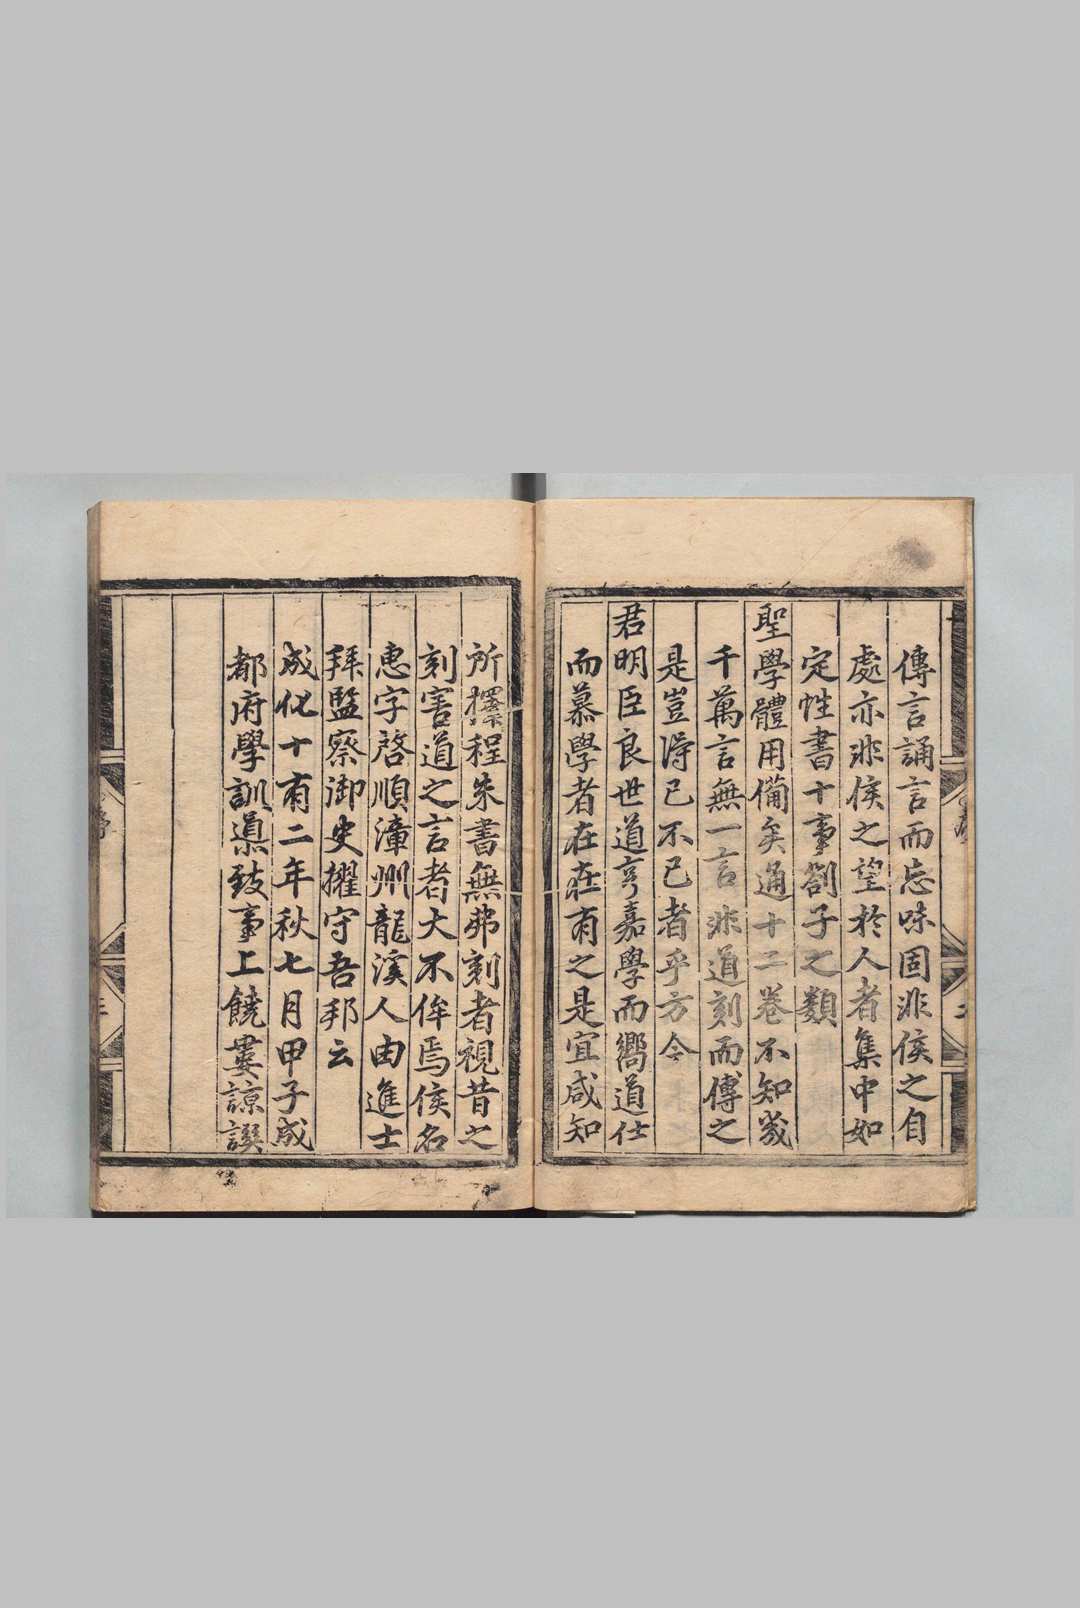 傳言誦言而忘味固非侯之自
處亦非侯之望於人者集中如
定性書十事劄子之類
聖學體用備矣通十二卷不知幾
千萬言無一言非道刻而傳之
是豈得已不已者乎方今
君明臣良世道亨嘉學而嚮道仕
而慕學者在在有之是宜咸知
所擇程朱書無弗刻者視昔之
刻害道之言者大不侔焉侯名
惠字啓順漳州龍溪人由進士
拜監察御史擢守吾邦云
成化十有二年秋七月甲子成
都府學訓導致事上饒婁諒譔
序
三
序
二